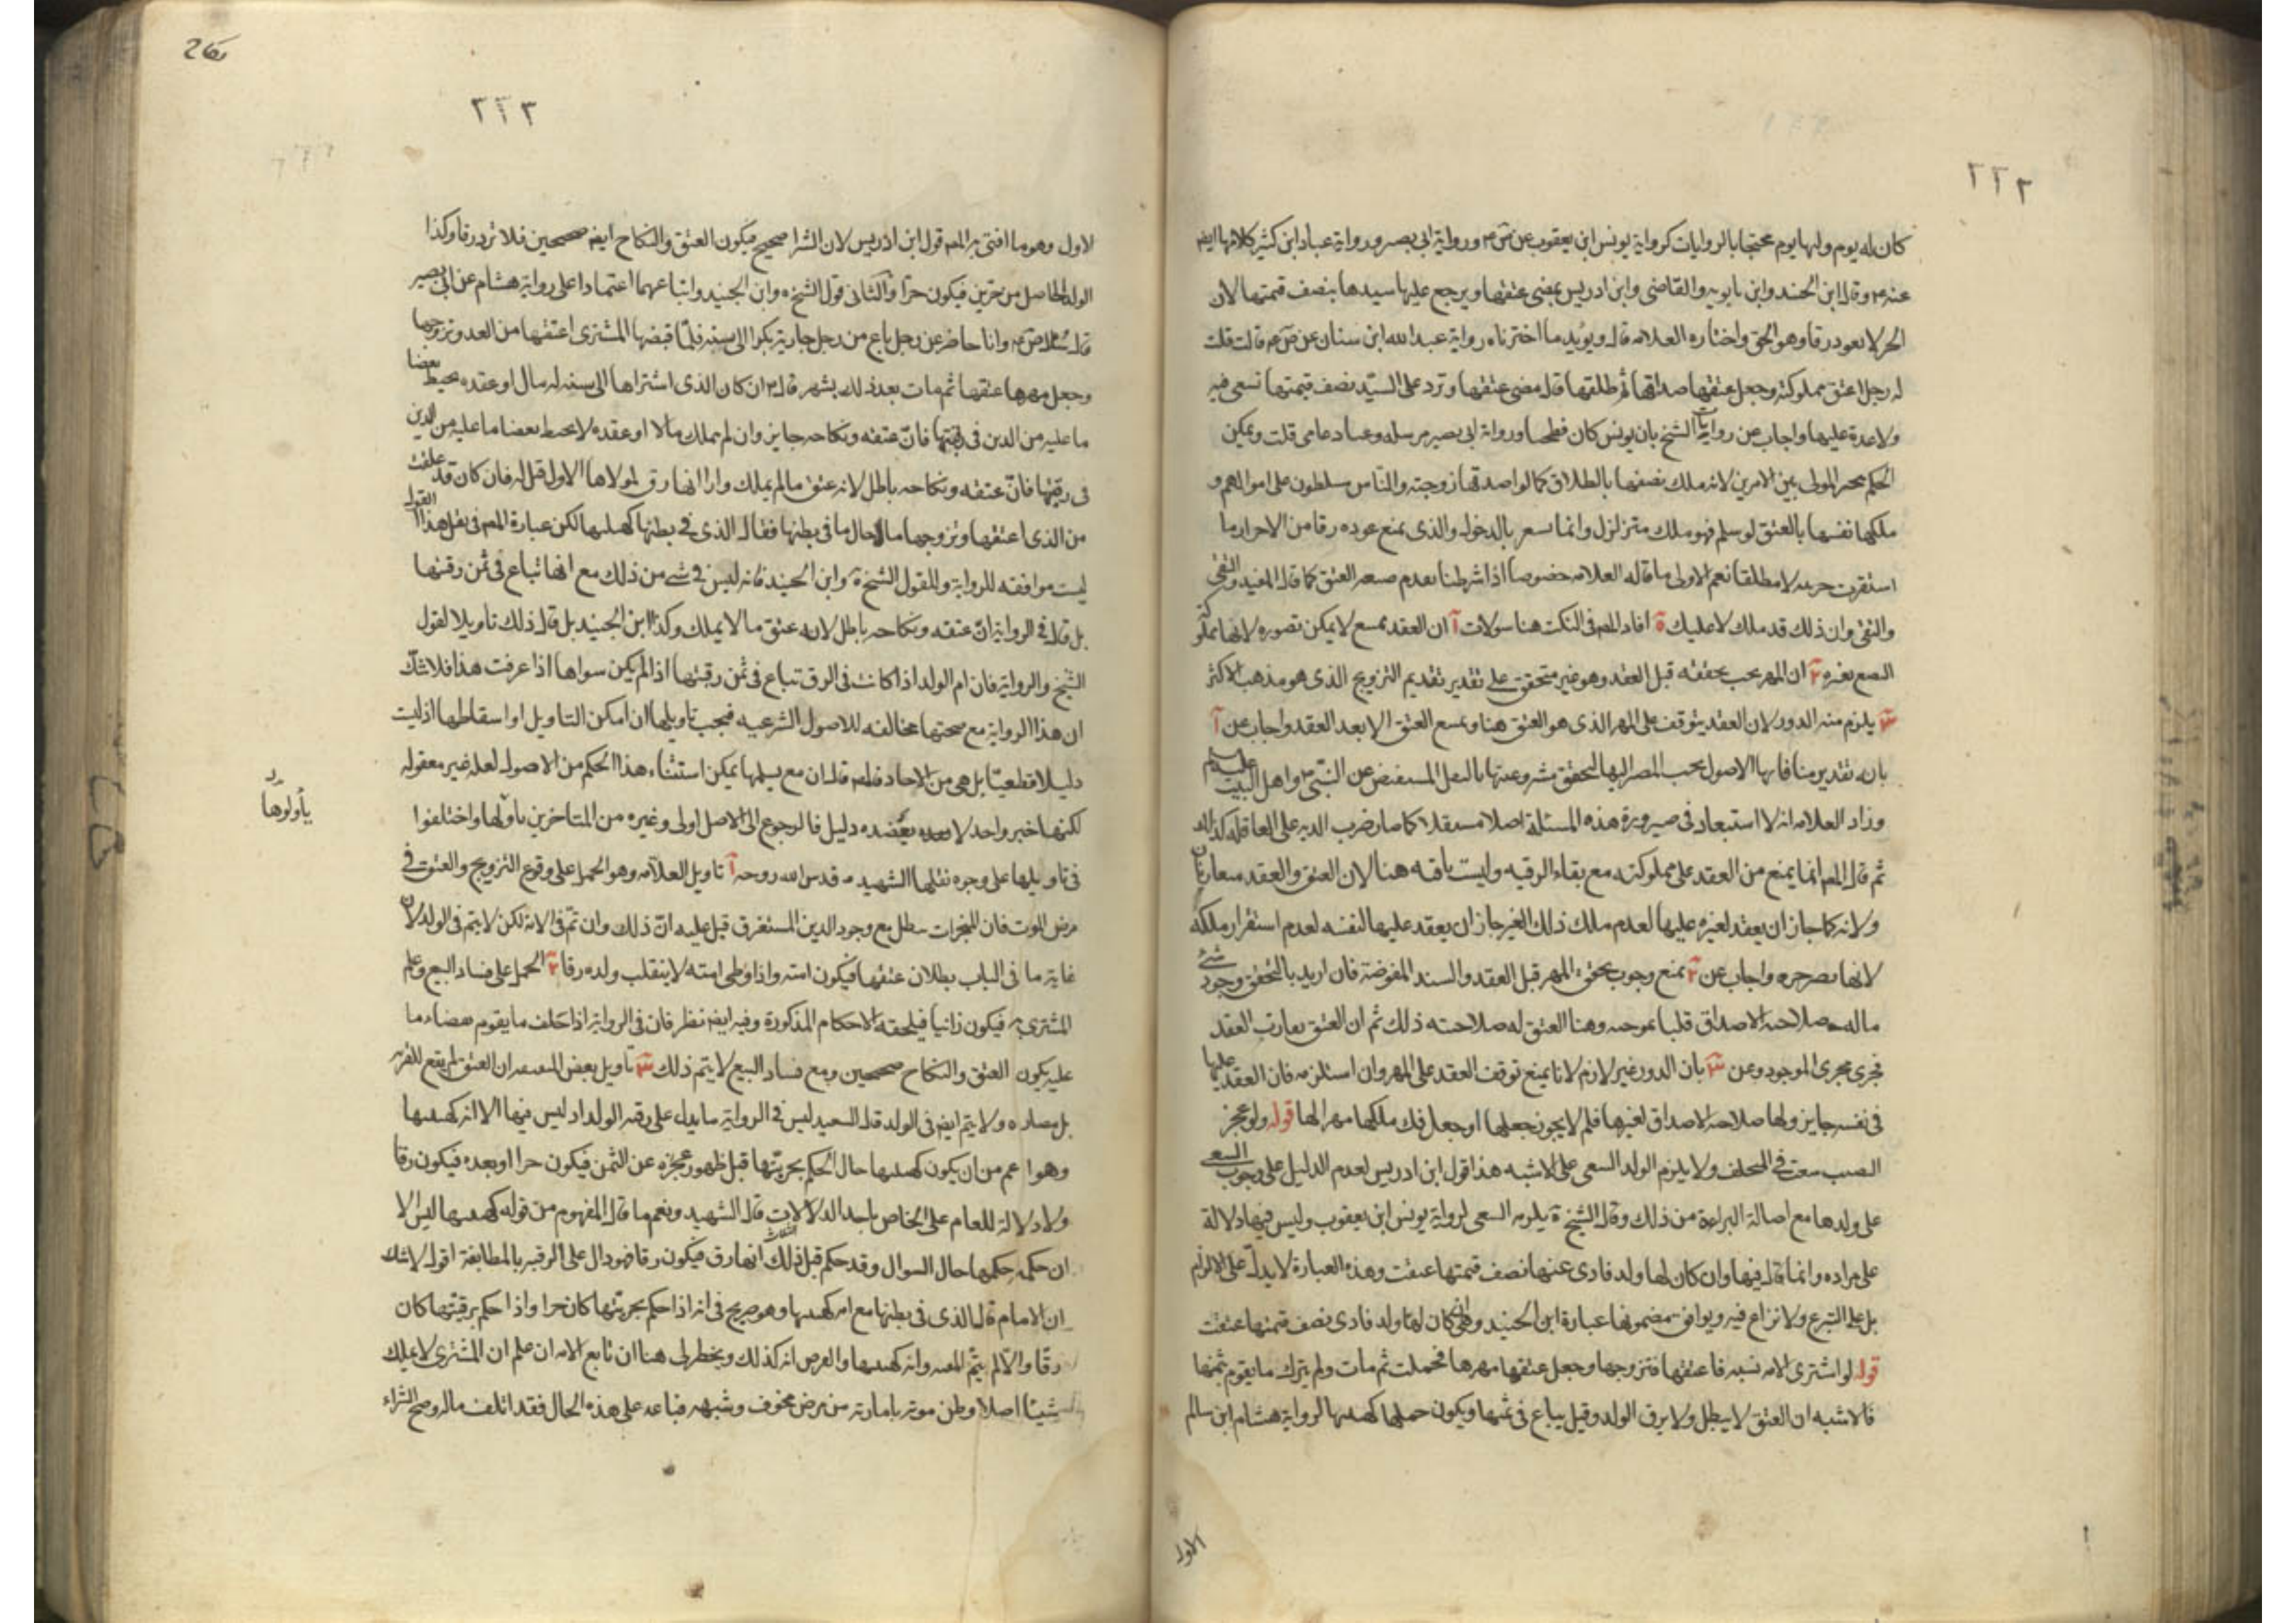 ٢٢٢
كان له يوم ولها يوم محتجا بالروايات كرواية يونس ابن يعقوب عن ورواية ابى بصير ورواية عباد ابن كثير كلاهما ايضا
عنه وقال ابن الجنيد وابن بابويه والقاضى وابن ادريس بمضى عتقها ويرجع عليها سيدها بنصف قيمتها لان
الحر لا يعود رقا وهو الحق واختاره العلامه قال ويؤيد ما اخترناه رواية عبد الله ابن سنان عن قال قلت
له رجل اعتق مملوكته وجعل عتقها صداقها ثم طلقها قال مضى عتقها وترد على السيد نصف قيمتها تسعى فيه
ولا عدة عليها واجاب عن روايات الشيخ بان يونس كان فطحيا ورواية ابى بصير مرسله وعباد عامى قلت ويمكن
الحكم بين الامرين لانه ملك نصفها بالطلاق كما لو اصدقها زوجته والناس مسلطون على اموالهم و
ملكها نفسها بالعتق لو سلم فهو ملك متزلزل وانما بالدخول والذى يمنع عوده رقا من الاحرار ما
استقرت حريته لا مطلقا نعم الاولى ما قاله العلامه خصوصا اذا شرطنا تقديم صيغة العتق كما قاله المفيد والتقى
والتقى وان ذلك قد ملك لا عليك ة افاد المصـ فى النكت هنا سولات آ ان العقد لا يمكن تصوره لانها مملوكة
البضع بغيره ٢ ان المهر يجب تحققه قبل العقد وهو غير متحقق على تقدير تقديم التزويج الذى هو مذهب الاكثر
٣ يلزم منه الدور لان العقد يتوقف على المهر الذى هو العتق هنا ويمتنع العتق الا بعد العقد واجاب عن آ
بان بتقدير منافاتها الاصول يجب المصير اليها لتحقق مشروعيتها بالنقل المستفيض عن النبى واهل البيت عليهم السلم
وزاد العلامه انه لا استبعاد فى صيرورة هذه المسئلة اصلا كما صار ضرب الديه على العاقله كذلك
ثم قال المصـ انما يمنع من العقد على مملوكته مع بقاء الرقيه وليست باقيه هنا لان العتق والعقد
ولانه كما جاز ان يعقد لغيره عليها لعدم ملك ذلك الغير جاز ان يعقد عليها لنفسه لعدم استقرار ملكه
لانها واجاب عن ٢ بمنع وجوب تحقق المهر قبل العقد والسند المفوضة فان اريد بالتحقق وجود شئ
ماله صلاحية الاصداق قلنا بموجبه وهنا العتق له صلاحيته ذلك ثم ان العتق يقارب العقد
فجرى مجرى الموجود وعن ٣ بان الدور غير لازم لانا نمنع توقف العقد على المهر وان استلزمه فان العقد عليها
فى نفسه جايز ولها صلاحية الاصداق لغيرها فلم لا يجوز جعلها او جعل فك ملكها مهرا لها قوله ولو عجز
سعت فى المتخلف ولا يلزم الولد السعى على الاشبه هذا قول ابن ادريس لعدم الدليل على وجوب السعى
على ولدها مع اصالة البراءة من ذلك وقال الشيخ يلزمه السعى لرواية يونس ابن يعقوب وليس فيها دلالة
على مراده وانما قال فيها وان كان لها ولد فادى عنها نصف قيمتها عتقت وهذه العبارة لا يدل على الالزام
بل على التبرع ولا نزاع فيه ويوافق مضمونها عبارة ابن الجنيد وهى كان لها ولد فادى نصف قيمتها عتقت
قوله لو اشترى الامه نسيه فاعتقها فتزوجها وجعل عتقها مهرها فحملت ثم مات ولم يترك ما يقوم بثمنها
فالاشبه ان العتق لا يبطل ولا يرق الولد وقيل يباع فى ثمنها ويكون حملها كهيئتها لرواية هشام ابن سالم
الاول
٢٢٣
الاول وهو ما افتى به المصـ قول ابن ادريس لان الشرا صحيح فيكون العتق والنكاح ايضا صحيحين فلا ترد رقا وكذا
الولد الحاصل من حرين فيكون حرا والثانى قول الشيخ وابن الجنيد واتباعهما اعتمادا على رواية هشام عن ابى بصير
قال سئل وانا حاضر عن رجل باع من رجل جارية بكرا الى سنه فلما قبضها المشترى اعتقها من الغد وتزوجها
وجعل مهرها عتقها ثم مات بعد ذلك بشهر قال ان كان الذى اشتراها الى سنه له مال او عقده يحيط بقضا
ما عليه من الدين فى رقبتها فان عتقه ونكاحه جايز وان لم يملك مالا او عقده لا يحيط بقضا ما عليه من الدين
فى رقبتها فان عتقه ونكاحه باطل لانه عتق ما لم يملك وارا انها رق لمولاها الاول قيل له فان كان قد علقت
من الذى اعتقها وتزوجها ما حال ما فى بطنها فقال الذى فى بطنها كهيئتها لكن عبارة المصـ فى نقل هذا القول
ليست موافقه للرواية ولقول الشيخ وابن الجنيد فانه ليس فى شئ من ذلك مع انها تباع فى ثمن رقبتها
بل قال فى الرواية ان عتقه ونكاحه باطل لانه عتق ما لا يملك وكذا ابن الجنيد بل قال ذلك تاويلا لقول
الشيخ والرواية فان ام الولد اذا كانت فى الرق تباع فى ثمن رقبتها اذا لم يكن سواها اذا عرفت هذا فلا شك
ان هذا الرواية مع صحتها مخالفه للاصول الشرعيه فيجب تاويلها ان امكن التاويل او اسقاطها اذ ليست
دليلا قطعيا بل هى من الاحاد قال ان مع تسليمها يمكن استثناء هذا الحكم من الاصول لعله غير معقوله
لكنها خبر واحد لا يعضده دليل فالرجوع الى الاصل اولى وغيره من المتاخرين تاولها واختلفوا
يأولوها
فى تاويلها على وجوه نقلها الشهيد قدس الله روحه آ تاويل العلامه وهو الحمل على وقوع التزويج والعتق فى
مرض الموت فان المنجزات تبطل مع وجود الدين المستغرق قيل عليه ان ذلك وان تم فى الامه لكن لا يتم فى الولد لان
غاية ما فى الباب بطلان عتقها فيكون امته واذا وطى امته لا ينقلب ولده رقا ٢ الحمل على فساد البيع وعلم
المشترى به فيكون زانيا فيلحقه الاحكام المذكورة وفيه ايضا نظر فان فى الرواية اذا خلف ما يقوم بقضاء ما
عليه يكون العتق والنكاح صحيحين ومع فساد البيع لا يتم ذلك ٣ تاويل بعض ان العتق لم يقع للقربه
بل ولا يتم ايضا فى الولد قال السعيد ليس فى الرواية ما يدل على رقيه الولد اذ ليس فيها الا انه كهيئتها
وهو اعم من ان يكون كهيئتها حال الحكم بحريتها قبل ظهور عجزه عن الثمن فيكون حرا او بعده فيكون رقا
ولا دلالة للعام على الخاص باحد الدلالات الثلث قال الشهيد ونعم ما قال المفهوم من قوله كهيئتها ليس الا
ان حكمه حكمها حال السوال وقد حكم قبل ذلك انها رق فيكون رقا فهو دال على الرقيه بالمطابقة اقول لا شك
ان الامام قال الذى فى بطنها مع امه كهيئتها وهو صريح فى انه اذا حكم بحريتها كان حرا واذا حكم برقيتها كان
رقا والا لم يتم وانه كهيئتها والفرض انه كذلك ويخطر لى هنا ان تابع الامه ان علم ان المشترى لا يملك
شيئا اصلا وظن موته بامارته من مرض مخوف وشبهه فباعه على هذه الحال فقد اتلف ماله وصح الشراء